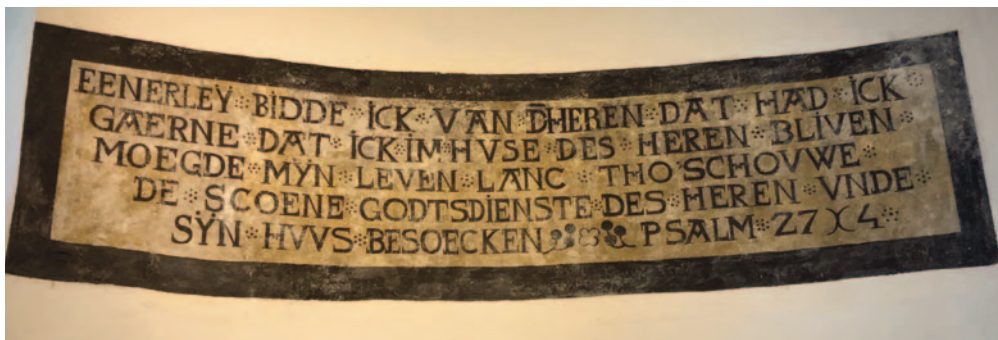 EENERLEY BIDDE ICK VAN DHEREN DAT HAD ICK
GAERNE DAT ICK IM HVSE DES HEREN BLIVEN
MOEGDE MYN LEVEN LANC THO SCHOVWE
DE SCOENE GODTSDIENSTE DES HEREN VNDE
SYN HVVS BESOECKEN PSALM 27 X 4